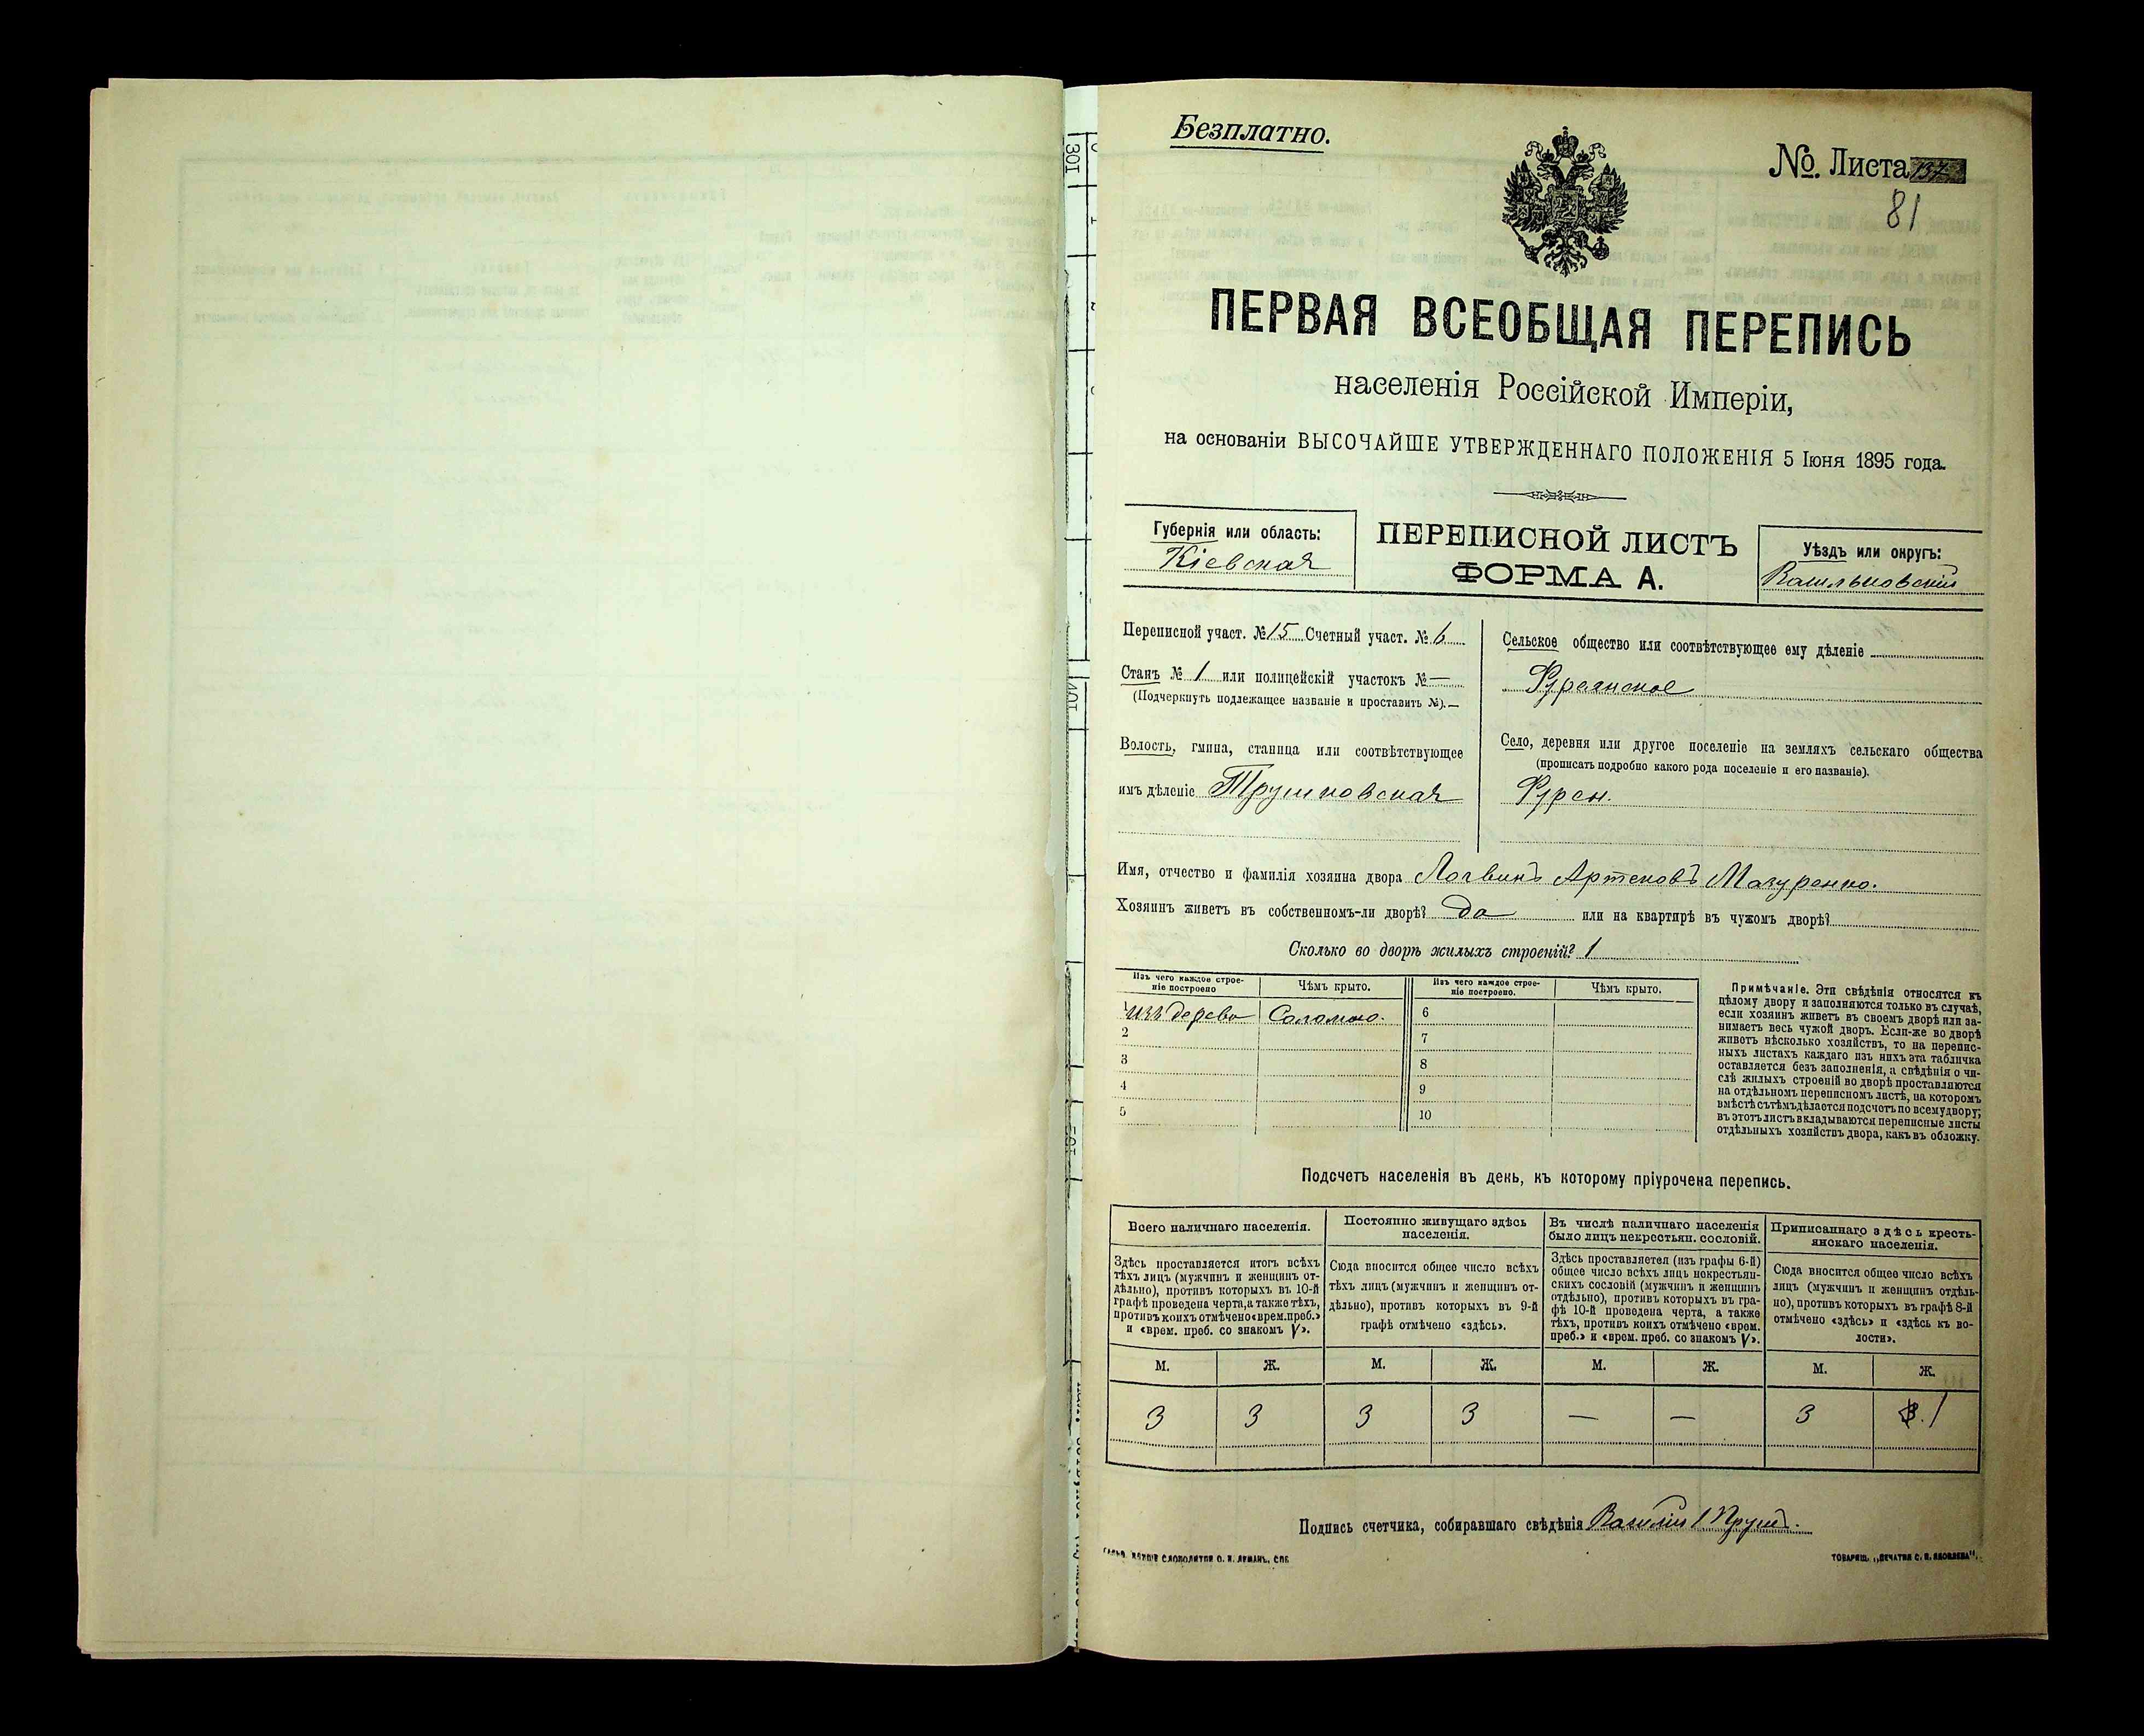 Безплатно.
№. Листа 137
81
ПЕРВАЯ ВСЕОБЩАЯ ПЕРЕПИСЬ
населенія Россійской Имперіи,
на основаніи ВЫСОЧАЙШЕ УТВЕРЖДЕННАГО ПОЛОЖЕНІЯ 5 Іюня 1895 года.
Губернія или область:
Кіевская
ПЕРЕПИСНОЙ ЛИСТЪ
ФОРМА А.
Уѣздъ или округъ:
Васильковскій
Переписной участ. № 15 Счетный участ. № 6
Станъ № 1 или полицейскій участокъ № —
(Подчеркнуть подлежащее названіе и проставить №).—
Волость, гмина, станица или соотвѣтствующее
имъ дѣленіе Трушковская
Сельское общество или соотвѣтствующее ему дѣленіе
Село, деревня или другое поселеніе на земляхъ сельскаго общества
(прописать подробно какого рода поселеніе и его названіе).
Имя, отчество и фамилія хозяина двора Логвинъ Артемовъ Мазуренко.
Хозяинъ живетъ въ собственномъ-ли дворѣ? да или на квартирѣ въ чужомъ дворѣ?
Сколько во дворѣ жилыхъ строеній? 1
Изъ чего каждое строе-
ніе построено
Чѣмъ крыто.
Изъ чего каждое строе-
ніе построено.
Чѣмъ крыто.
1 изъ дерева Соломою. 6
2 7
3 8
4 9
5 10
Примѣчаніе. Эти свѣдѣнія относятся къ
цѣлому двору и заполняются только въ случаѣ,
если хозяинъ живетъ въ своемъ дворѣ или за-
нимаетъ весь чужой дворъ. Если-же во дворѣ
живетъ нѣсколько хозяйствъ, то на перепис-
ныхъ листахъ каждаго изъ нихъ эта табличка
оставляется безъ заполненія, а свѣдѣнія о чи-
слѣ жилыхъ строеній во дворѣ проставляются
на отдѣльномъ переписномъ листѣ, на которомъ
вмѣстѣ съ тѣмъ дѣлается подсчетъ по всему двору;
въ этотъ листъ вкладываются переписные листы
отдѣльныхъ хозяйствъ двора, какъ въ обложку.
Подсчетъ населенія въ день, къ которому пріурочена перепись.
Всего наличнаго населенія.
Здѣсь проставляется итогъ всѣхъ
тѣхъ лицъ (мужчинъ и женщинъ от-
дѣльно), противъ которыхъ въ 10-й
графѣ проведена черта, а также тѣхъ,
противъ коихъ отмѣчено «врем. преб.»
и «врем. преб. со знакомъ V».
Постоянно живущаго здѣсь
населенія.
Сюда вносится общее число всѣхъ
тѣхъ лицъ (мужчинъ и женщинъ от-
дѣльно), противъ которыхъ въ 9-й
графѣ отмѣчено «здѣсь».
Въ числѣ наличнаго населенія
было лицъ некрестьян. сословій.
Здѣсь проставляется (изъ графы 6-й)
общее число всѣхъ лицъ некрестьян-
скихъ сословій (мужчинъ и женщинъ
отдѣльно), противъ которыхъ въ гра-
фѣ 10-й проведена черта, а также
тѣхъ, противъ коихъ отмѣчено «врем.
преб.» и «врем. преб. со знакомъ V».
Приписаннаго здѣсь кресть-
янскаго населенія.
Сюда вносится общее число всѣхъ
лицъ (мужчинъ и женщинъ отдѣль-
но), противъ которыхъ въ графѣ 8-й
отмѣчено «здѣсь» и «здѣсь къ во-
лости».
М. Ж. М. Ж. М. Ж. М. Ж.
3 3 3 3 — — 3 3. 1
Подпись счетчика, собиравшаго свѣдѣнія Василій
ТОВАРИЩ. „ПЕЧАТНЯ С. П. ЯКОВЛЕВА“.